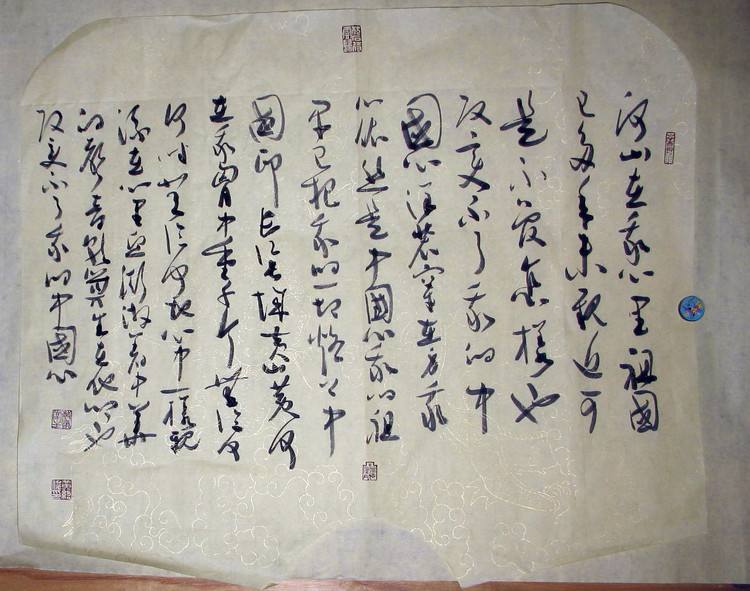 河山在我心里祖國
已多年未親近可
是不管怎樣也
改变不了我的中
國心洋装穿在身我
心依然是中國心我的祖
早已把我的一切烙上中
國印长江长城黄山黄河
在我胸中重千斤無论
何时無论何地心中一樣親
流在心里血澎湃着中華
的聲音就算生在他也
改变不了我的中國心